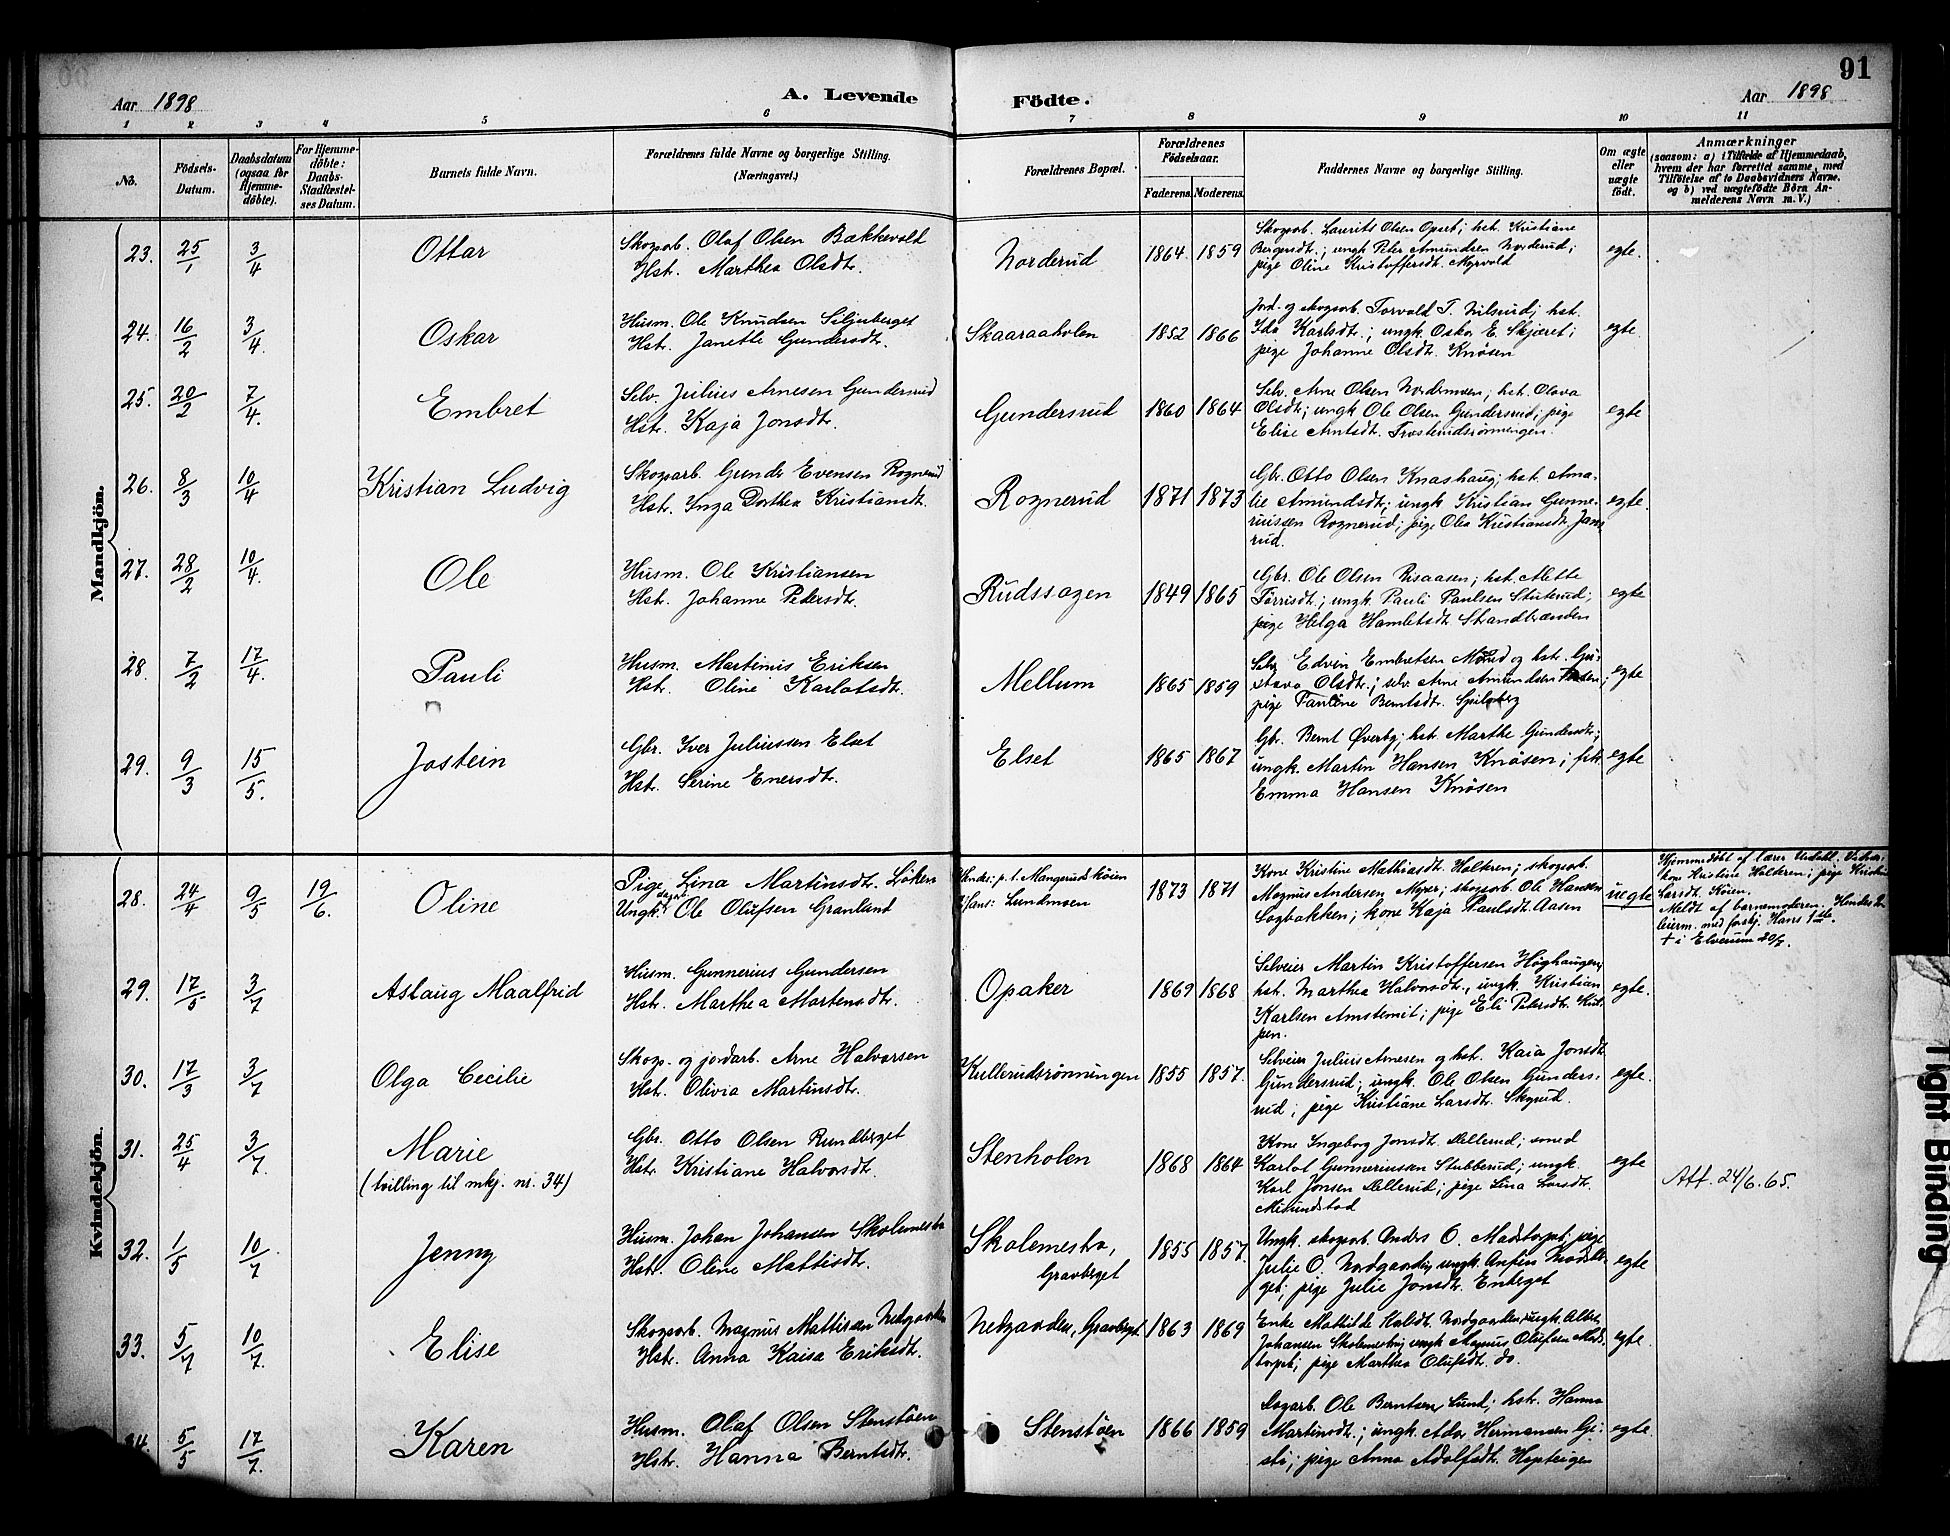 91
Aar 1898
A. Levende
Födte.
Aar 1898
1 2 3 4 5 6 7 8 9 10 11
No.
Födsels-
Datum.
Daabsdatum
(ogsaa for
Hjemme-
döbte).
For Hjemme-
döbte:
Daabs-
Stadfæstel-
ses Datum.
Barnets fulde Navn.
Forældrenes fulde Navne og borgerlige Stilling.
(Næringsvei.)
Forældrenes Bopæl.
Forældrenes
Födselsaar.
Faderens. Moderens.
Faddernes Navne og borgerlige Stilling.
Om ægte
eller
uægte
födt.
Anmærkninger
(saasom: a) i Tilfælde af Hjemmedaab,
hvem der har forrettet samme, med
Tilföielse af to Daabsvidners Navne,
og b) ved uægtefödte Börn An-
melderens Navn m. V.)
Mandkjön.
23. 25/1 3/4 Ottar
Skogsarb. Olaf Olsen Bækkevold
Hst. Marthea Olsdt.
Norderud 1864 1859
Skogsarb. Laurits Olsen Opset; hst. Kristiane
Bergersdt.; ungk. Peter Amundsen Norderud;
pige Oline Kristoffersdt. Myrvold
egte.
24. 16/2 3/4. Oskar
Husm. Ole Knudsen Siljuberget
Hst. Janette Gundersdt.
Skaaraaholen 1852 1866
Jord- og skogsarb. Torvald T. Nilsrud; hst.
Ida Karlsdt.; ungk. Oskar E. Skjæret;
pige Johanne Olsdt. Knösen
egte.
25. 20/2 7/4. Embret
Selv. Julius Arnesen Gundersrud
Hst. Kaja Jonsdt.
Gundersrud 1860 1864
Selv. Arne Olsen Nordrmoen; hst. Olava
Olsdt; ungk. Ole Olsen Gundersrud; pige
Elise Arntsdt.
egte
26. 8/3 10/4 Kristian Ludvig
Skogsarb. Gunder Evensen Rognerud
Hst. Inga Dorthea Kristiansdt.
Rognerud 1871 1873
Gbr. Otto Olsen Knashaug; hst. Ama-
lie Amundsdt; ungk. Kristian Gunne-
riussen Rognerud; pige Olea Kristiansdt. Jams-
rud.
egte.
27. 28/2 10/4. Ole
Husm. Ole Kristiansen
Hst. Johanne Pedersdt.
Rudssagen 1849 1865
Gbr. Ole Olsen Risaasen; hst. Mette
Torrisdt.; ungk. Pauli Paulsen Stuterud;
pige Helga Hamletsdt. Strandbrænden
egte
28. 7/2 17/4. Pauli
Husm. Martinus Eriksen
Hst. Oline Karlotsdt.
Mellum 1865 1859
Selv Edvin Embretsen Moerud og hst. Gu-
stava Olsdt.; selv. Arne Amundsen Moen;
pige Pauline Berntsdt. Spilsberg
egte
29. 9/3 15/5. Jostein
Gbr. Iver Juliussen Elset
Hst. Serine Enersdt.
Elset 1865 1867
Gbr. Bernt Øverby; hst. Marthe Gundersdt.;
ungk. Martin Hansen Knösen; frk
Emma Hansen Knösen
egte
Kvindekjön.
28. 24/4 9/5 19/6. Oline
Pige Lina Martinsdt. Löken
Ungk. Ole Olufsen Granlund
Hendes: p. t. Mangerudskoien
Hans: Lundmoen
1873 1871
Kone Kristine Mathiasdt. Holkren; skogsarb.
Magnus Andersen Myer; skogsarb. Ole Hansen
Sagbakken; kone Kaja Paulsdt. Aasen
uegte
Hjemmedöbt af lærer Urdahl. Vidner:
kone Kristine Holkren; pige Kristine
Larsdt. Köien.
Meldt af barnemoderen. Hendes 2.
leierm. med forskj. Hans 1ste.
† i Elverum 20/7.
29. 17/5 3/7 Aslaug Maalfrid
Husm. Gunnerius Gundersen
Hst. Marthea Martensdt.
Opaker 1869 1868
Selveier Martin Kristoffersen Höghaugen,
hst. Marthea Halvorsdt., ungk. Kristian
Karlsen Amstemit; pige Eli Petersdt. Kul-
pen.
egte.
30. 17/3 3/7 Olga Cecilie
Skogs- og jordarb. Arne Halvorsen
Hst. Olivia Martinsdt.
Kullerudsrønningen 1855 1857.
Selveier Julius Arnesen og hst. Kaia Jonsdt
Gundersrud; ungk. Ole Olsen Gunders-
rud; pige Kristiane Larsdt. Skyrud.
egte.
31. 25/4 3/7. Marie
(tvilling til mkj. nr. 34)
Gbr. Otto Olsen Rundberget
Hst. Kristiane Halvorsdt.
Stenholen 1868 1864
Kone Ingeborg Jonsdt. Dellerud; smed
Karlot Gunneriussen Stubberud; ungk.
Karl Jonsen Dellerud; pige Lina Larsdt.
Misundstad
egte
Att. 24/6. 65.
32. 1/5 10/7 Jenny
Husm. Johan Johansen Skolemestr
Hst. Oline Mattisdt.
Skolemestr,
Gravberget
1855 1857.
Ungk. skogsarb. Anders O. Madstorpet; pige
Julie O. Nordgaarden; ungk. Anfin
get; pige Julie Jonsdt. Enberget
egte
33. 5/7 10/7 Elise
Skogsarb. Magnus Mattisen Nedgaarden
Hst. Anna Kaisa Eriksdt.
Nedgaarden, Gravberget 1863 1869
Enke Mathilde Haldt. Nordgaarden; ungk. Albert
Johansen Skolemestr; ungk. Magnus Olufsen Mads-
torpet; pige Marthea Olufsdt. do.
egte.
34. 5/5 17/7. Karen
Husm. Olaf Olsen Stenstöen
Hst. Hanna Berntsdt.
Stenstöen 1866 1859
Dagarb. Ole Berntsen Lund; hst. Hanna
Martinsdt.; ungk. Ador Hermansen Gje-
sti; pige Anna Adolfsdt. Hopteigen
egte.
Tight Binding